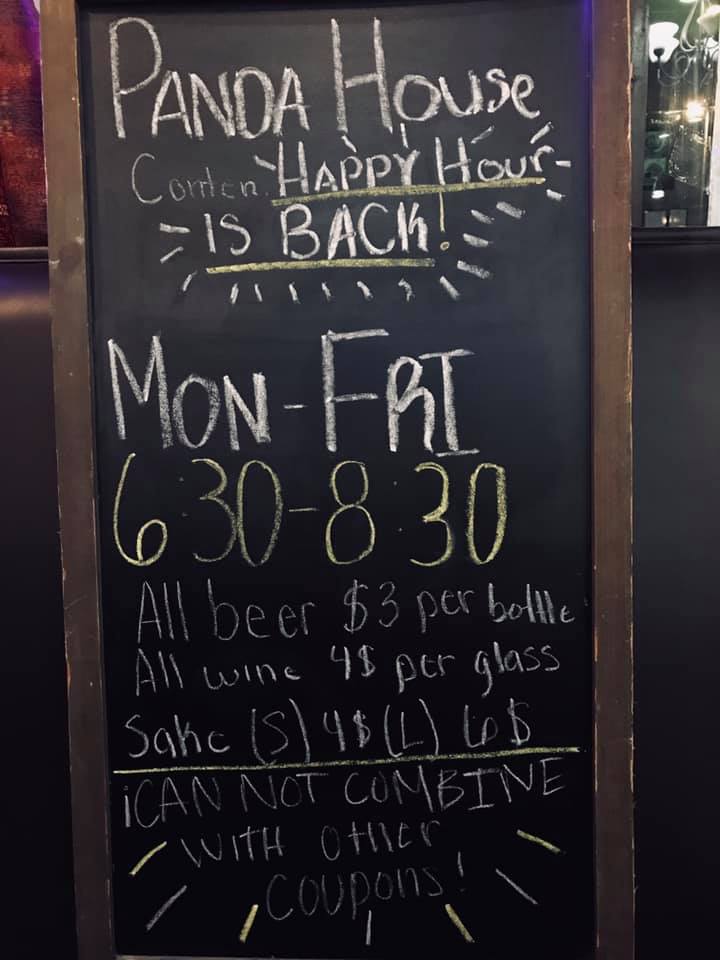 PANDA HOUSE
HAPPY HOUR
IS BACK!
MON-FRI
6:30-8:30
All beer $3 per bottle
All wine 4$ per glass
Sake (S) 4$ (L) 6$
¡CAN NOT COMBINE
WITH other
coupons!